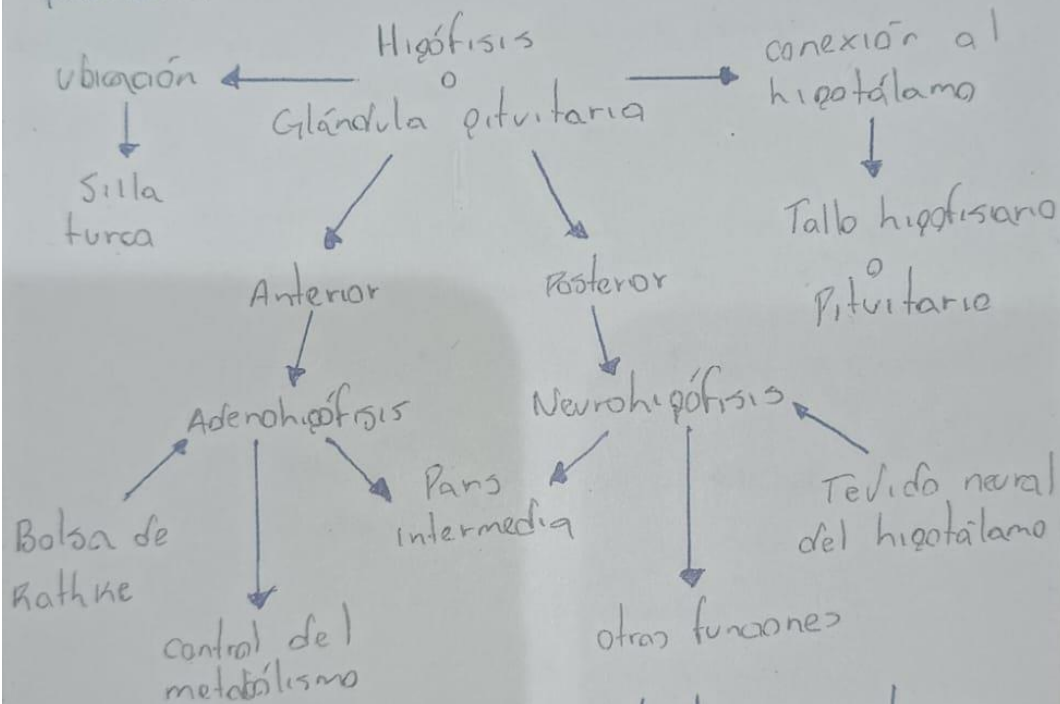 Hipófisis
o
Glándula pituitaria
Ubicación
Silla
turca
conexión al
hipotálamo
Tallo hipofisiario
o
Pituitario
Anterior
Posterior
Adenohipófisis
Neurohipófisis
Bolsa de
Rathke
Pars
intermedia
Tejido neural
del hipotálamo
control del
metabólismo
otras funciones